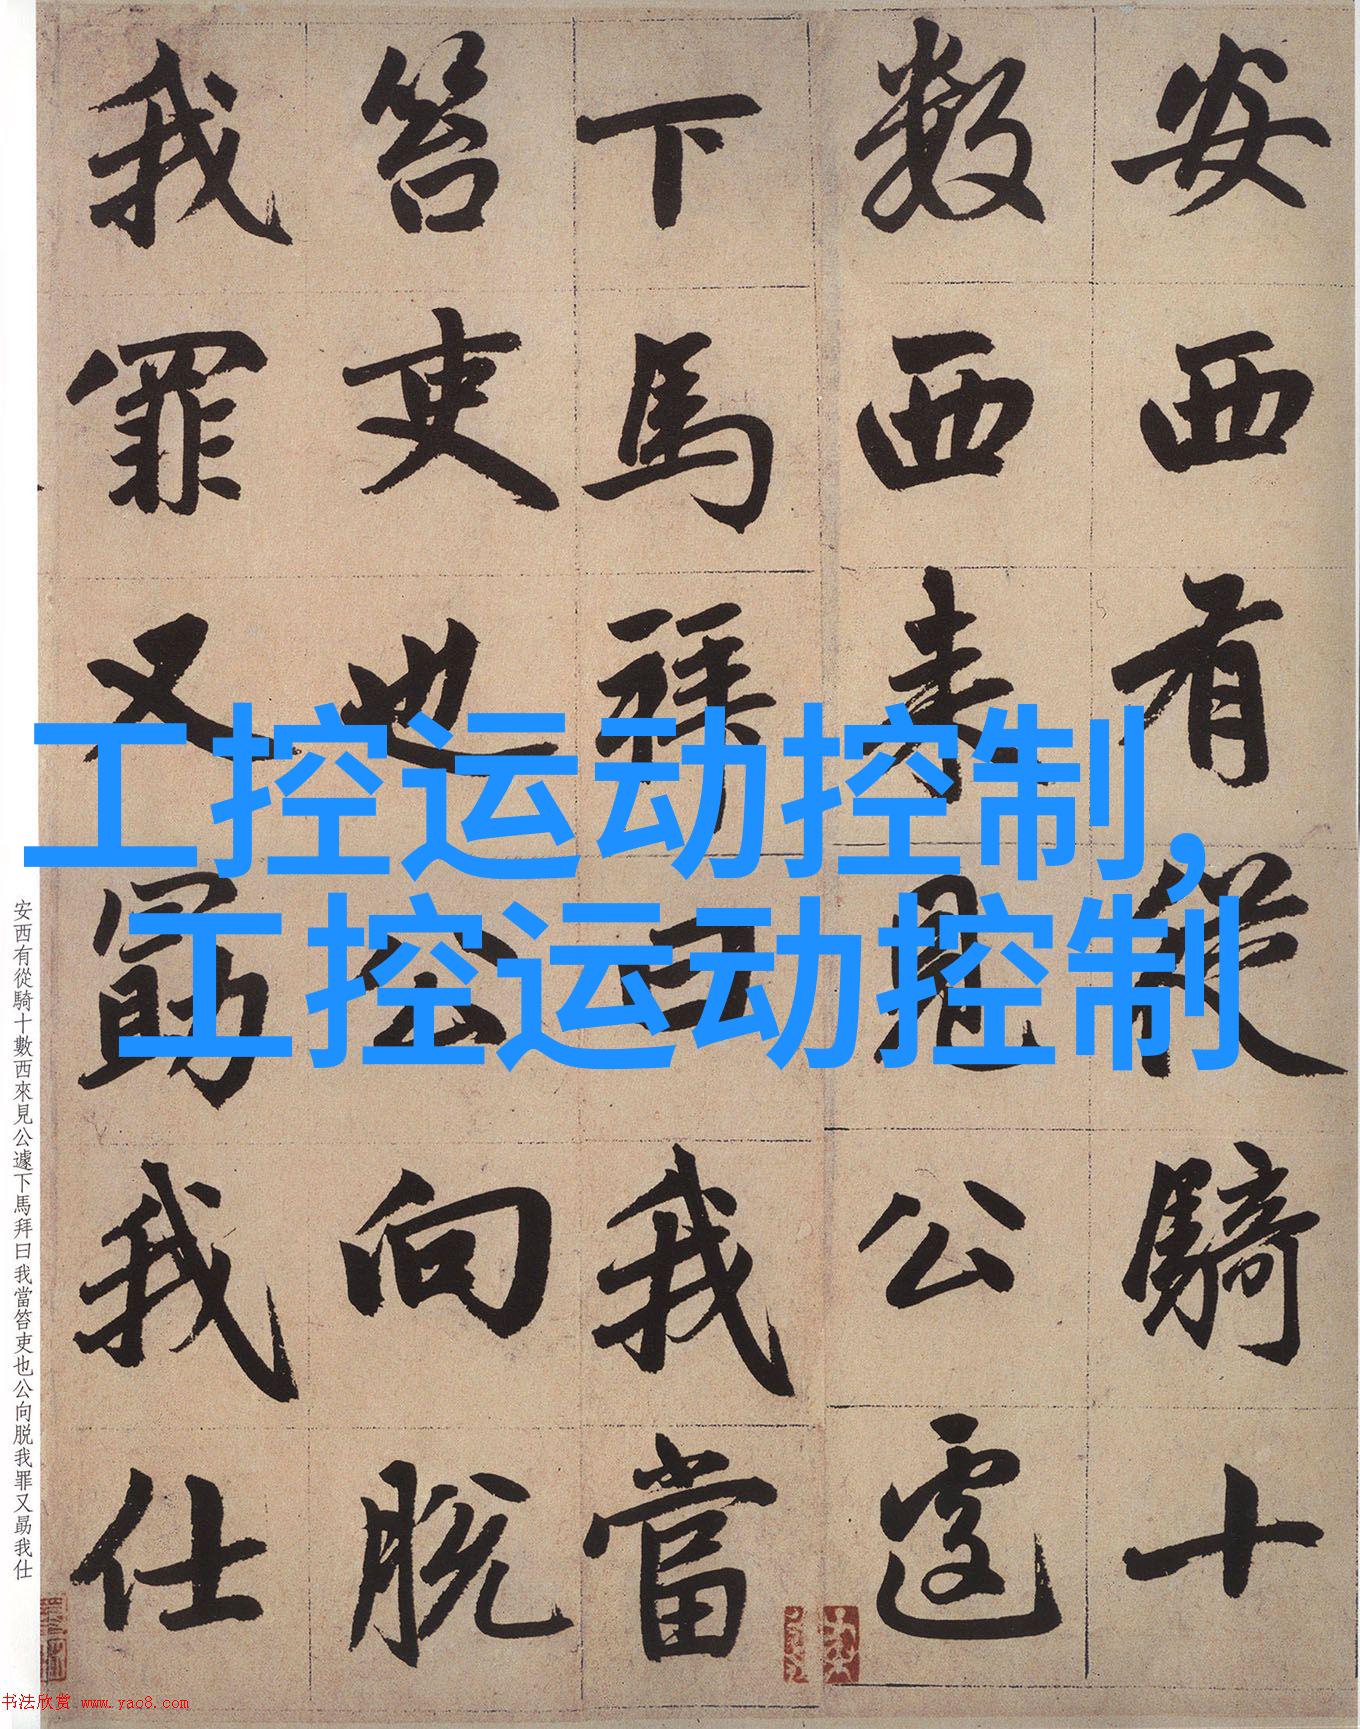 安西有從騎十
數西來見公遽
下馬拜曰我當
笞吏也公向脱
我罪又勗我仕
工控运动控制,
工控运动控制
安西有從騎十數西來見公遽下馬拜曰我當笞吏也公向脱我罪又勗我仕
书法欣赏 www.yac8.com